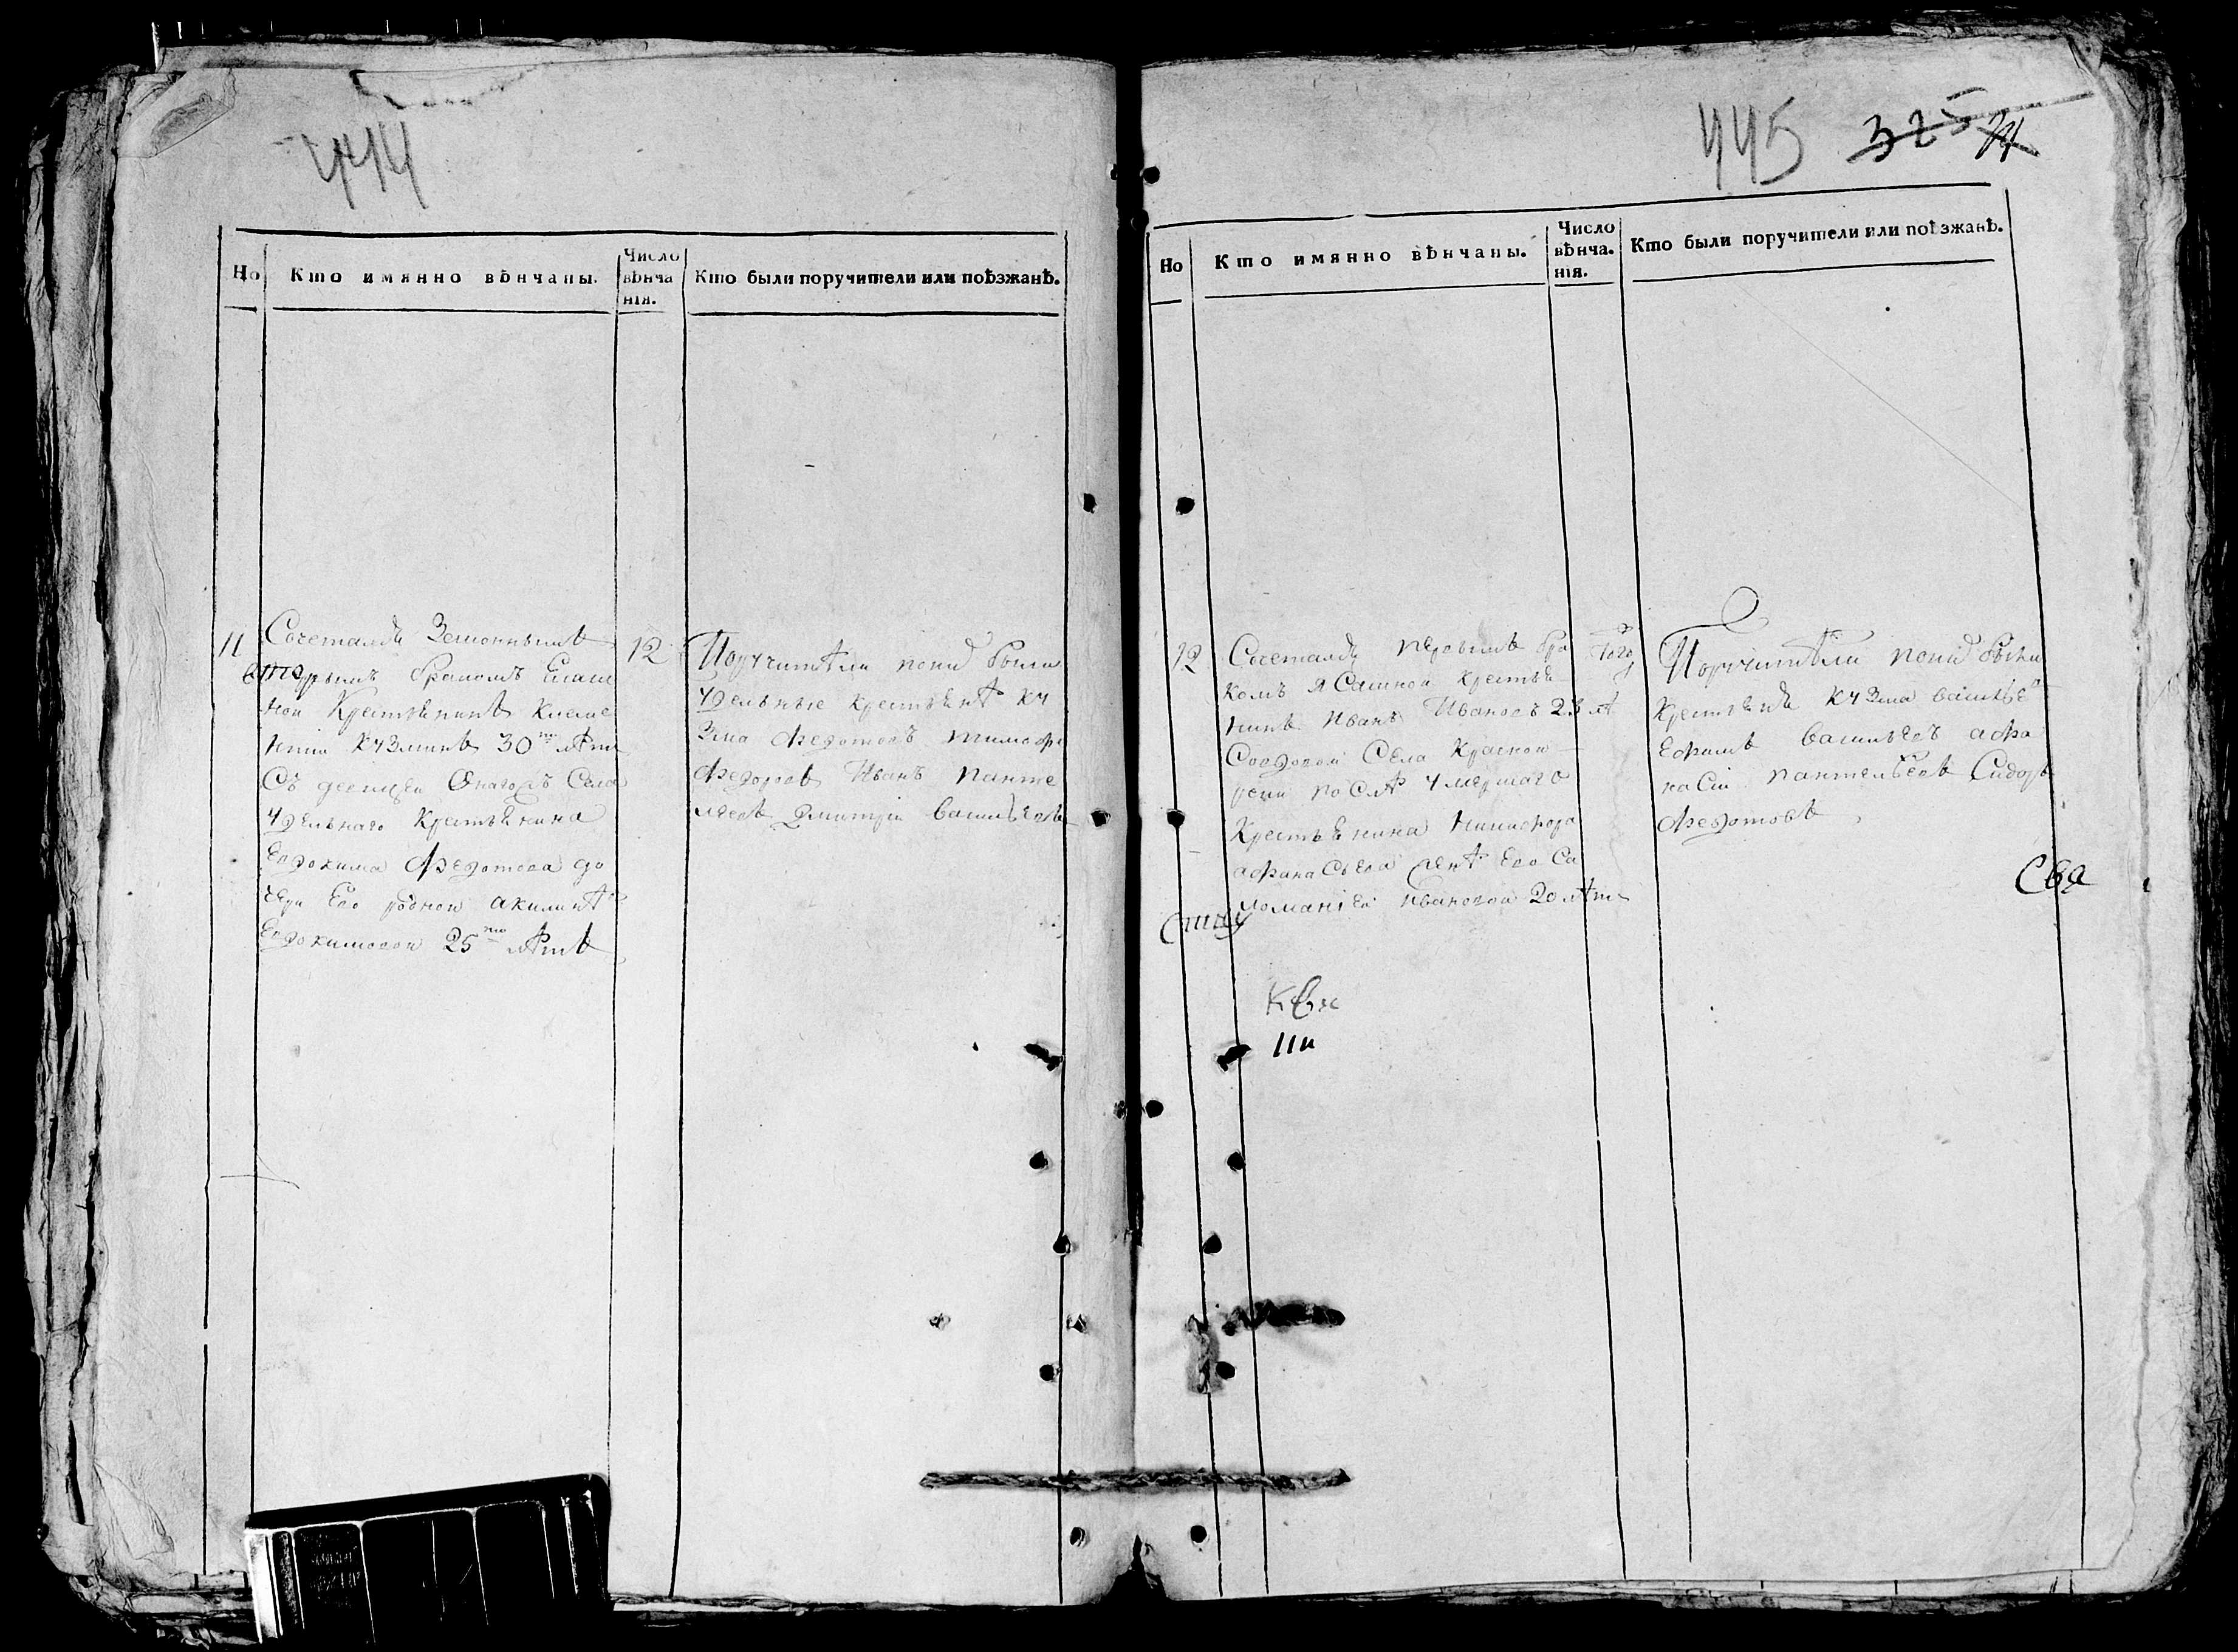 444
Но
Кто имянно вѣнчаны.
Число
вѣнча
нія.
Кто были поручители или поѣзжанѣ.
11
Сочетался Законнымъ
вторымъ бракомъ
ной Крестьянинъ Климе
нтій Кузминъ 30 лѣтъ
Съ девицеи Онагожъ Села
удельнаго Крестьянина
Евдокима Федотова до
чери Его родной акилинѣ
Евдокимовой 25 лѣтъ
12
Поручители по нихъ были
удельные крестьянѣ Ку
зма Федотовъ тимофе
Федоровъ Иванъ панте
леевъ Дмитрiи васильевъ
445 325
Но
Кто имянно вѣнчаны.
Число
вѣнча.
нія.
Кто были поручители или поѣзжанѣ.
12
Сочетался первымъ бра
комъ ясашной крестья
нинъ Иванъ Ивановъ 23 лѣ
Села Красной
реки послѣ умершаго
Крестьянина Никифора
афанасьева женѣ Его Са
ломаніей Ивановой 20 лѣтъ
того
Поручители по нихъ были
Крестьянѣ Кузма васильев
Ефимъ васильевъ афа
насіи пантелѣевъ Сидоръ
Федотовъ
Свя
11